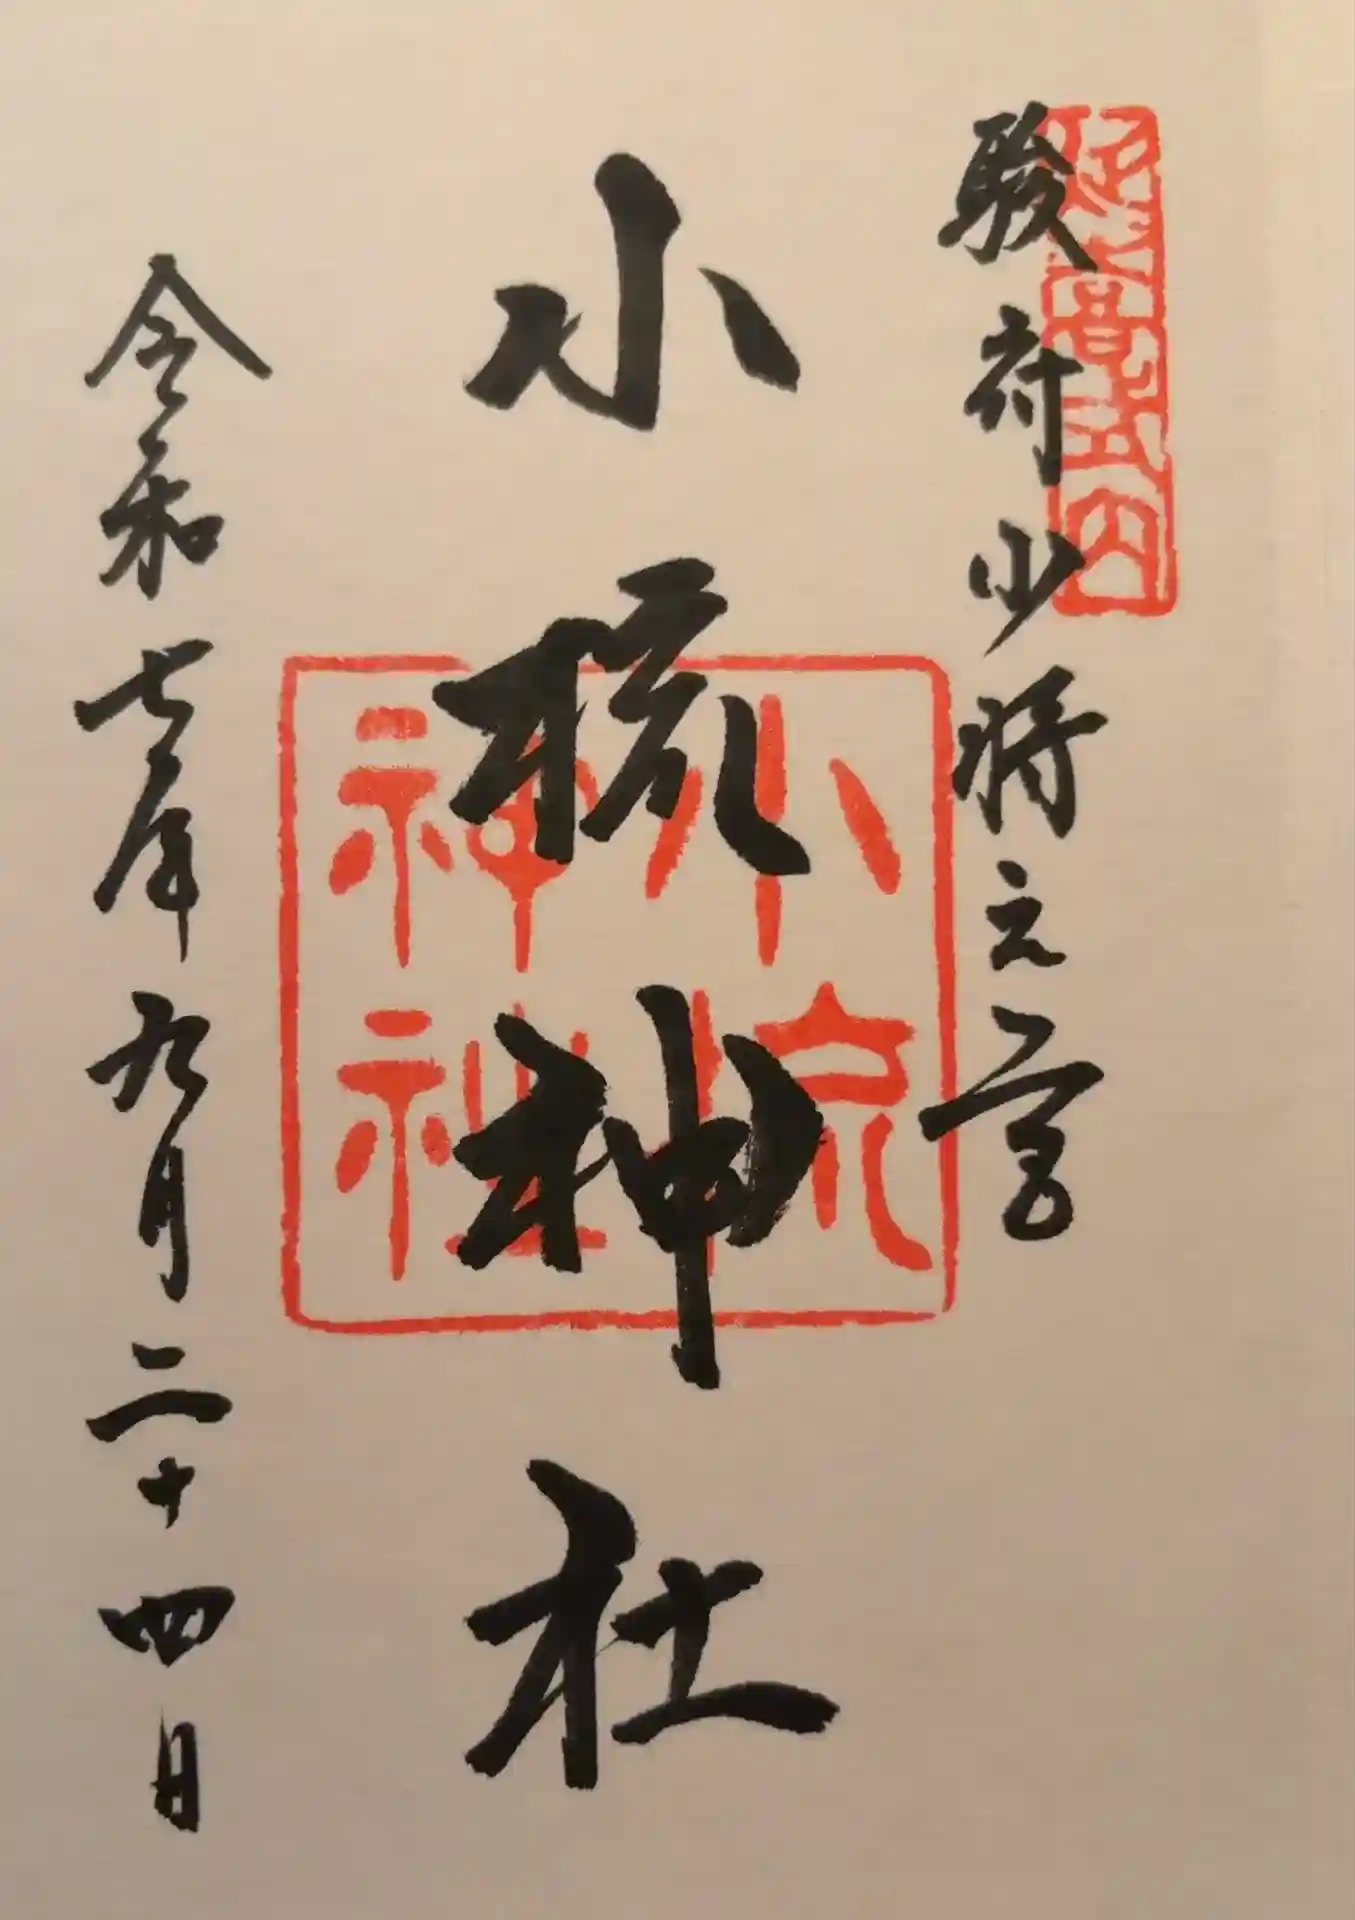 延喜式内
駿府少将之宮
小梳神社
小梳
神社
令和七年九月二十四日